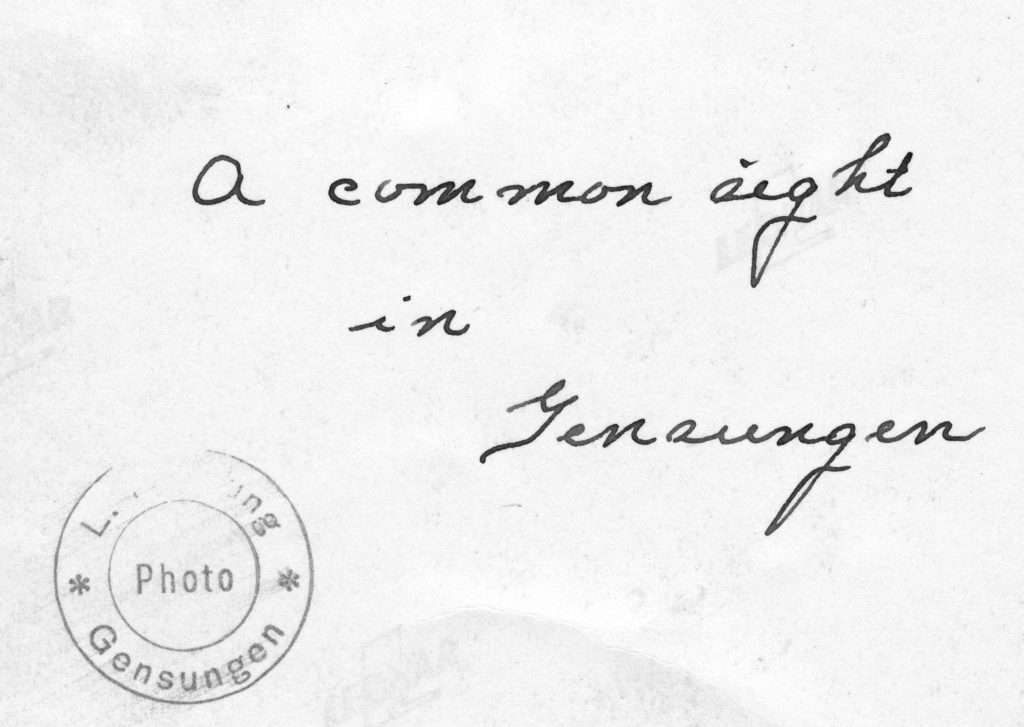 A common sight
in
Gensungen
L.
Photo
* *
Gensungen